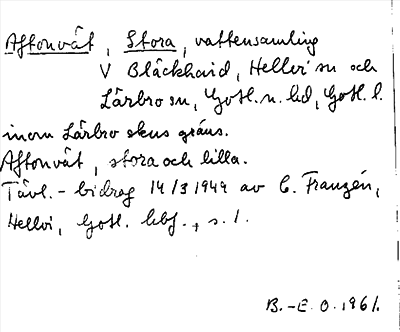 Aftonvät, Stora, vattensamling
V Bläckhaid, Hellvi sn och
Lärbro sn, Gotl. n. hd, Gotl. l.
inom Lärbro skns gräns.
Aftonvät, stora och lilla.
Tävl.-bidrag 14/3 1949 av C. Franzén,
Hellvi, Gotl. hbf., s. 1.
B.-E. O. 1961.